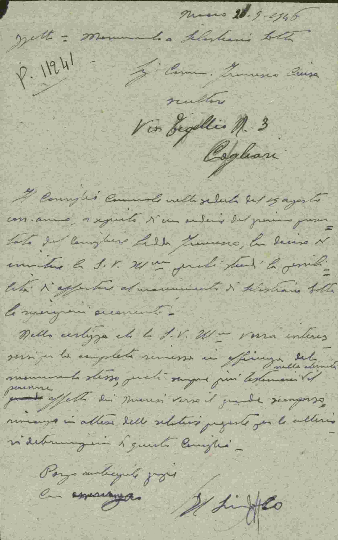 Nuoro 21-9-1946
Oggetto = Monumento a Sebastiano Satta
P. 11941
Sig. Comm. Francesco Ciusa
scultore
Via Tigellio N. 3
Cagliari
Il Consiglio Comunale nella seduta del 19 agosto
corr. anno, a seguito di un ordine del giorno presen-
tato dal Consigliere Sedda Francesco, ha deciso di
invitare la S.V. Ill.ma perché studi la possibi-
lità di apportare al monumento di Sebastiano Satta
le
Nella certezza che la S.V. Ill.ma vorrà interes-
sarsi per la completa rimessa in efficienza del
monumento stesso, perché sempre più testimoni nel
affetto dei nuoresi verso il grande scomparso
rimango in attesa delle relative proposte per le ulterio-
ri determinazioni di questo Consiglio.
Porgo anticipate grazie
Con
Il Sindaco